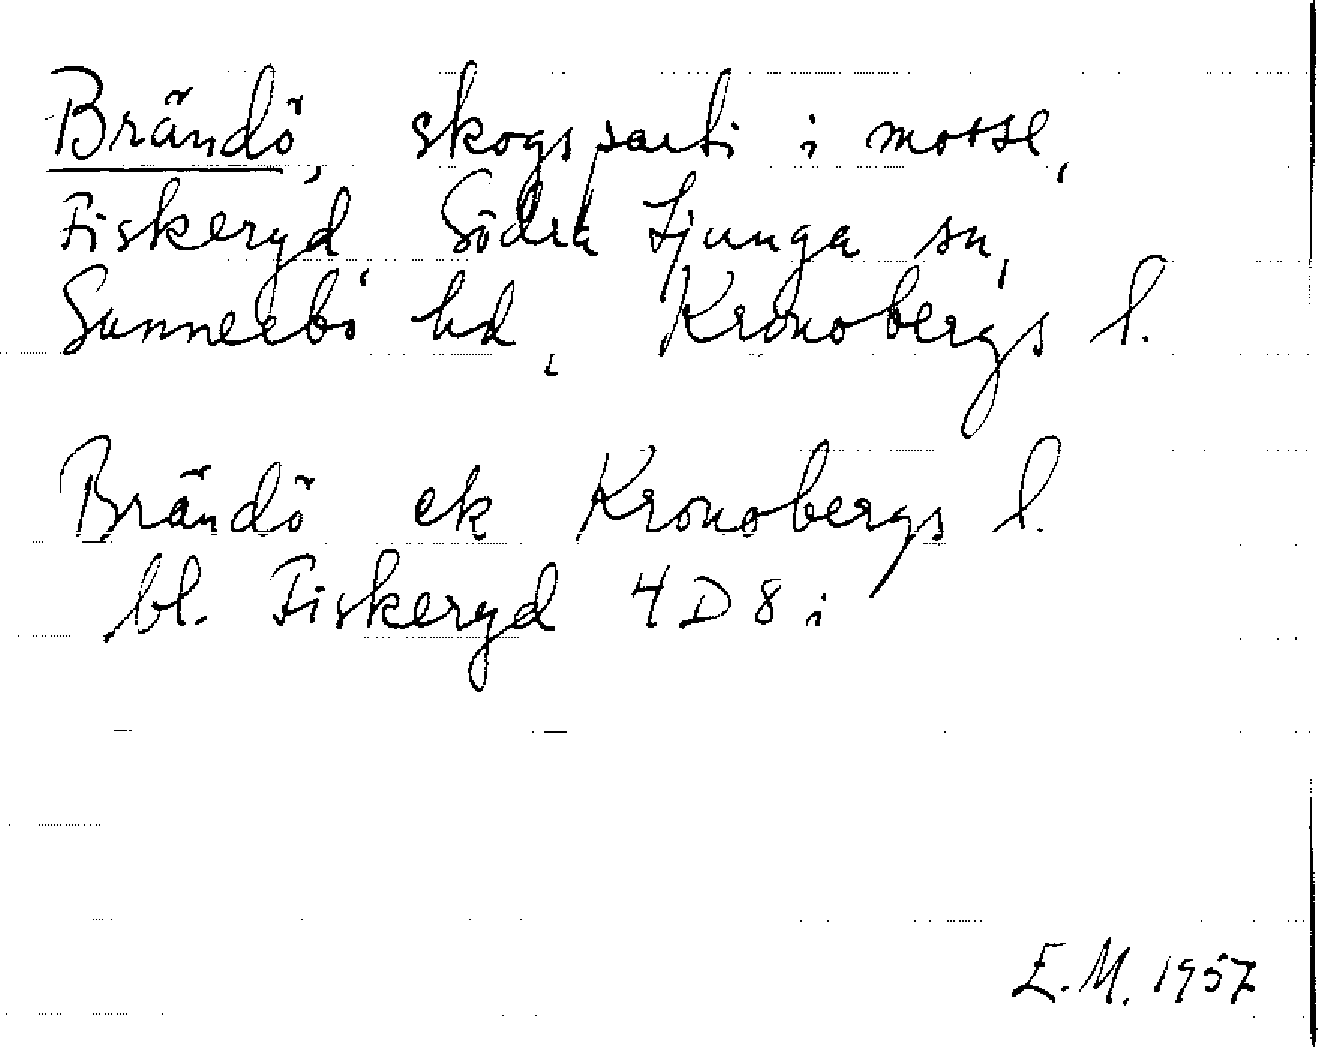 Brändö, skogsparti i mosse,
Fiskeryd, Södra Ljunga sn,
Sunnerbo hd, Kronobergs l.
Brändö ek Kronobergs l.
bl. Fiskeryd 4D8i
E.M. 1957